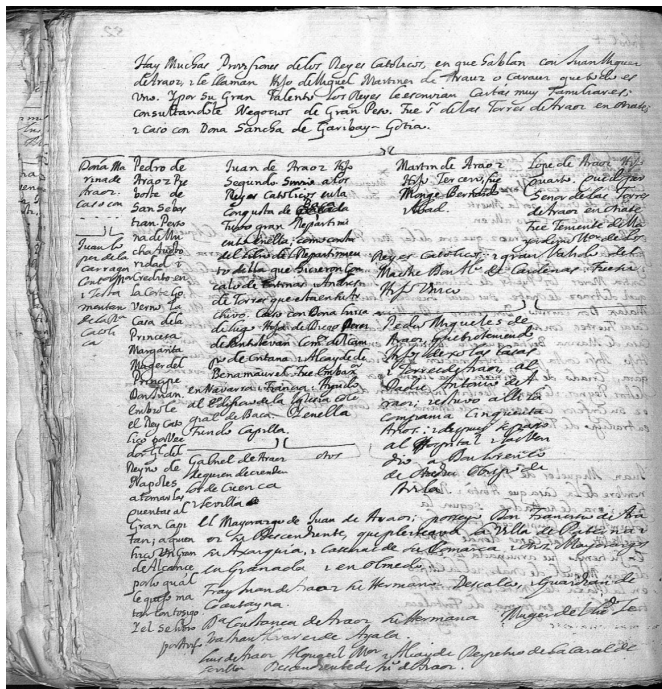 Hay Muchas Provisiones de los Reyes Catolicos, en que hablan con Juan Miguez
de Araoz, i le llaman Hijo de Miguel Martinez de Araoz o Carauz que todo es
Vno. Y por su Gran Talento los Reyes le escriuian Cartas muy familiares;
consultandole Negocios de Gran Peso. Fue Sr de las Torres de Araoz en Oñate;
i caso con Dona Sancha de Garibay - Gotia.
Doña Ma
rina de
Araoz.
Caso con
Juan Lo
pez de la
Carraga
Contador
i Testa
mentario
de la Rna
Catoli
ca
Pedro de
Araoz Pre
boste de
San Sebas
tian Perso
na de Mu
cha Auto
ridad i
Credito en
la Corte Go
verno la
Casa de la
Princesa
Margarita
Muger del
Principe
Don Juan.
Embiole
el Rey Cato
lico por Vee
dor Gl del
Reyno de
Napoles
a tomar las
quentas al
Gran Capi
tan; a quien
hizo Un Gran
de Alcance
por lo qual
le quiso ma
tar
i el se libro
Juan de Araoz Hijo
Segundo Sirvio a los
Reyes Catolicos en la
Conquista de Baca
tubo gran Repartimi
en Zenella; como consta
del Libro del Repartimien
to de Torres que esta en el Ar
chivo. Caso con Dona
de Lugo Hija de Diego Perez
de Santistevan Comor de Cam
po de Montana i Alcayde de
Benamaurel. Fue Embaxor
en Navarra i Francia i Ayudo
al Edificio de la Iglesia Cole
gial de Baca. Zenella
Fundo Capilla.
Gabriel de Araoz
de quien decienden
los de Cuenca
i Sevilla
otros
Martin de Araoz
Hijo Tercero, fue
Monge Bernardo
Abad.
Lope de Araoz Hijo
Quarto, quedo por
Señor de las Torres
de Araoz en Oñate
fue Teniente de Ma
yordomo Mor de los
Reyes Catolicos; i gran Valido de el
Maestre Don Alo de Cardenas. fue su
Hijo Unico
Pedro Miguelez de
Araoz que no teniendo
Hijos dexo las Casas
i Torres de Araoz al
Padre Antonio de A
raoz; i estuvo alli la
Compania Cinquenta
Años; i despues se paso
al Hospital i la Ven
dio a Don Lorenzo
Obispo de
Avila
el Mayorazgo de Juan de Araoz; posseyo Don Francisco de Ara
oz su Descendiente, que pleiteava la Villa de
en Axarquia, i Caserias de su Comarca i otros Mayorazgos
en Granada i en Olmedo.
Fray Juan de Araoz su Hermano Descalço, i Guardian de
Da Costanca de Araoz su Hermana Muger de
Don Juan Alvarez de Ayala.
Luis de Araoz Alguacil Mor i Alcayde Perpetuo de la Carcel de
Sevilla Descendiente de Jun de Araoz.